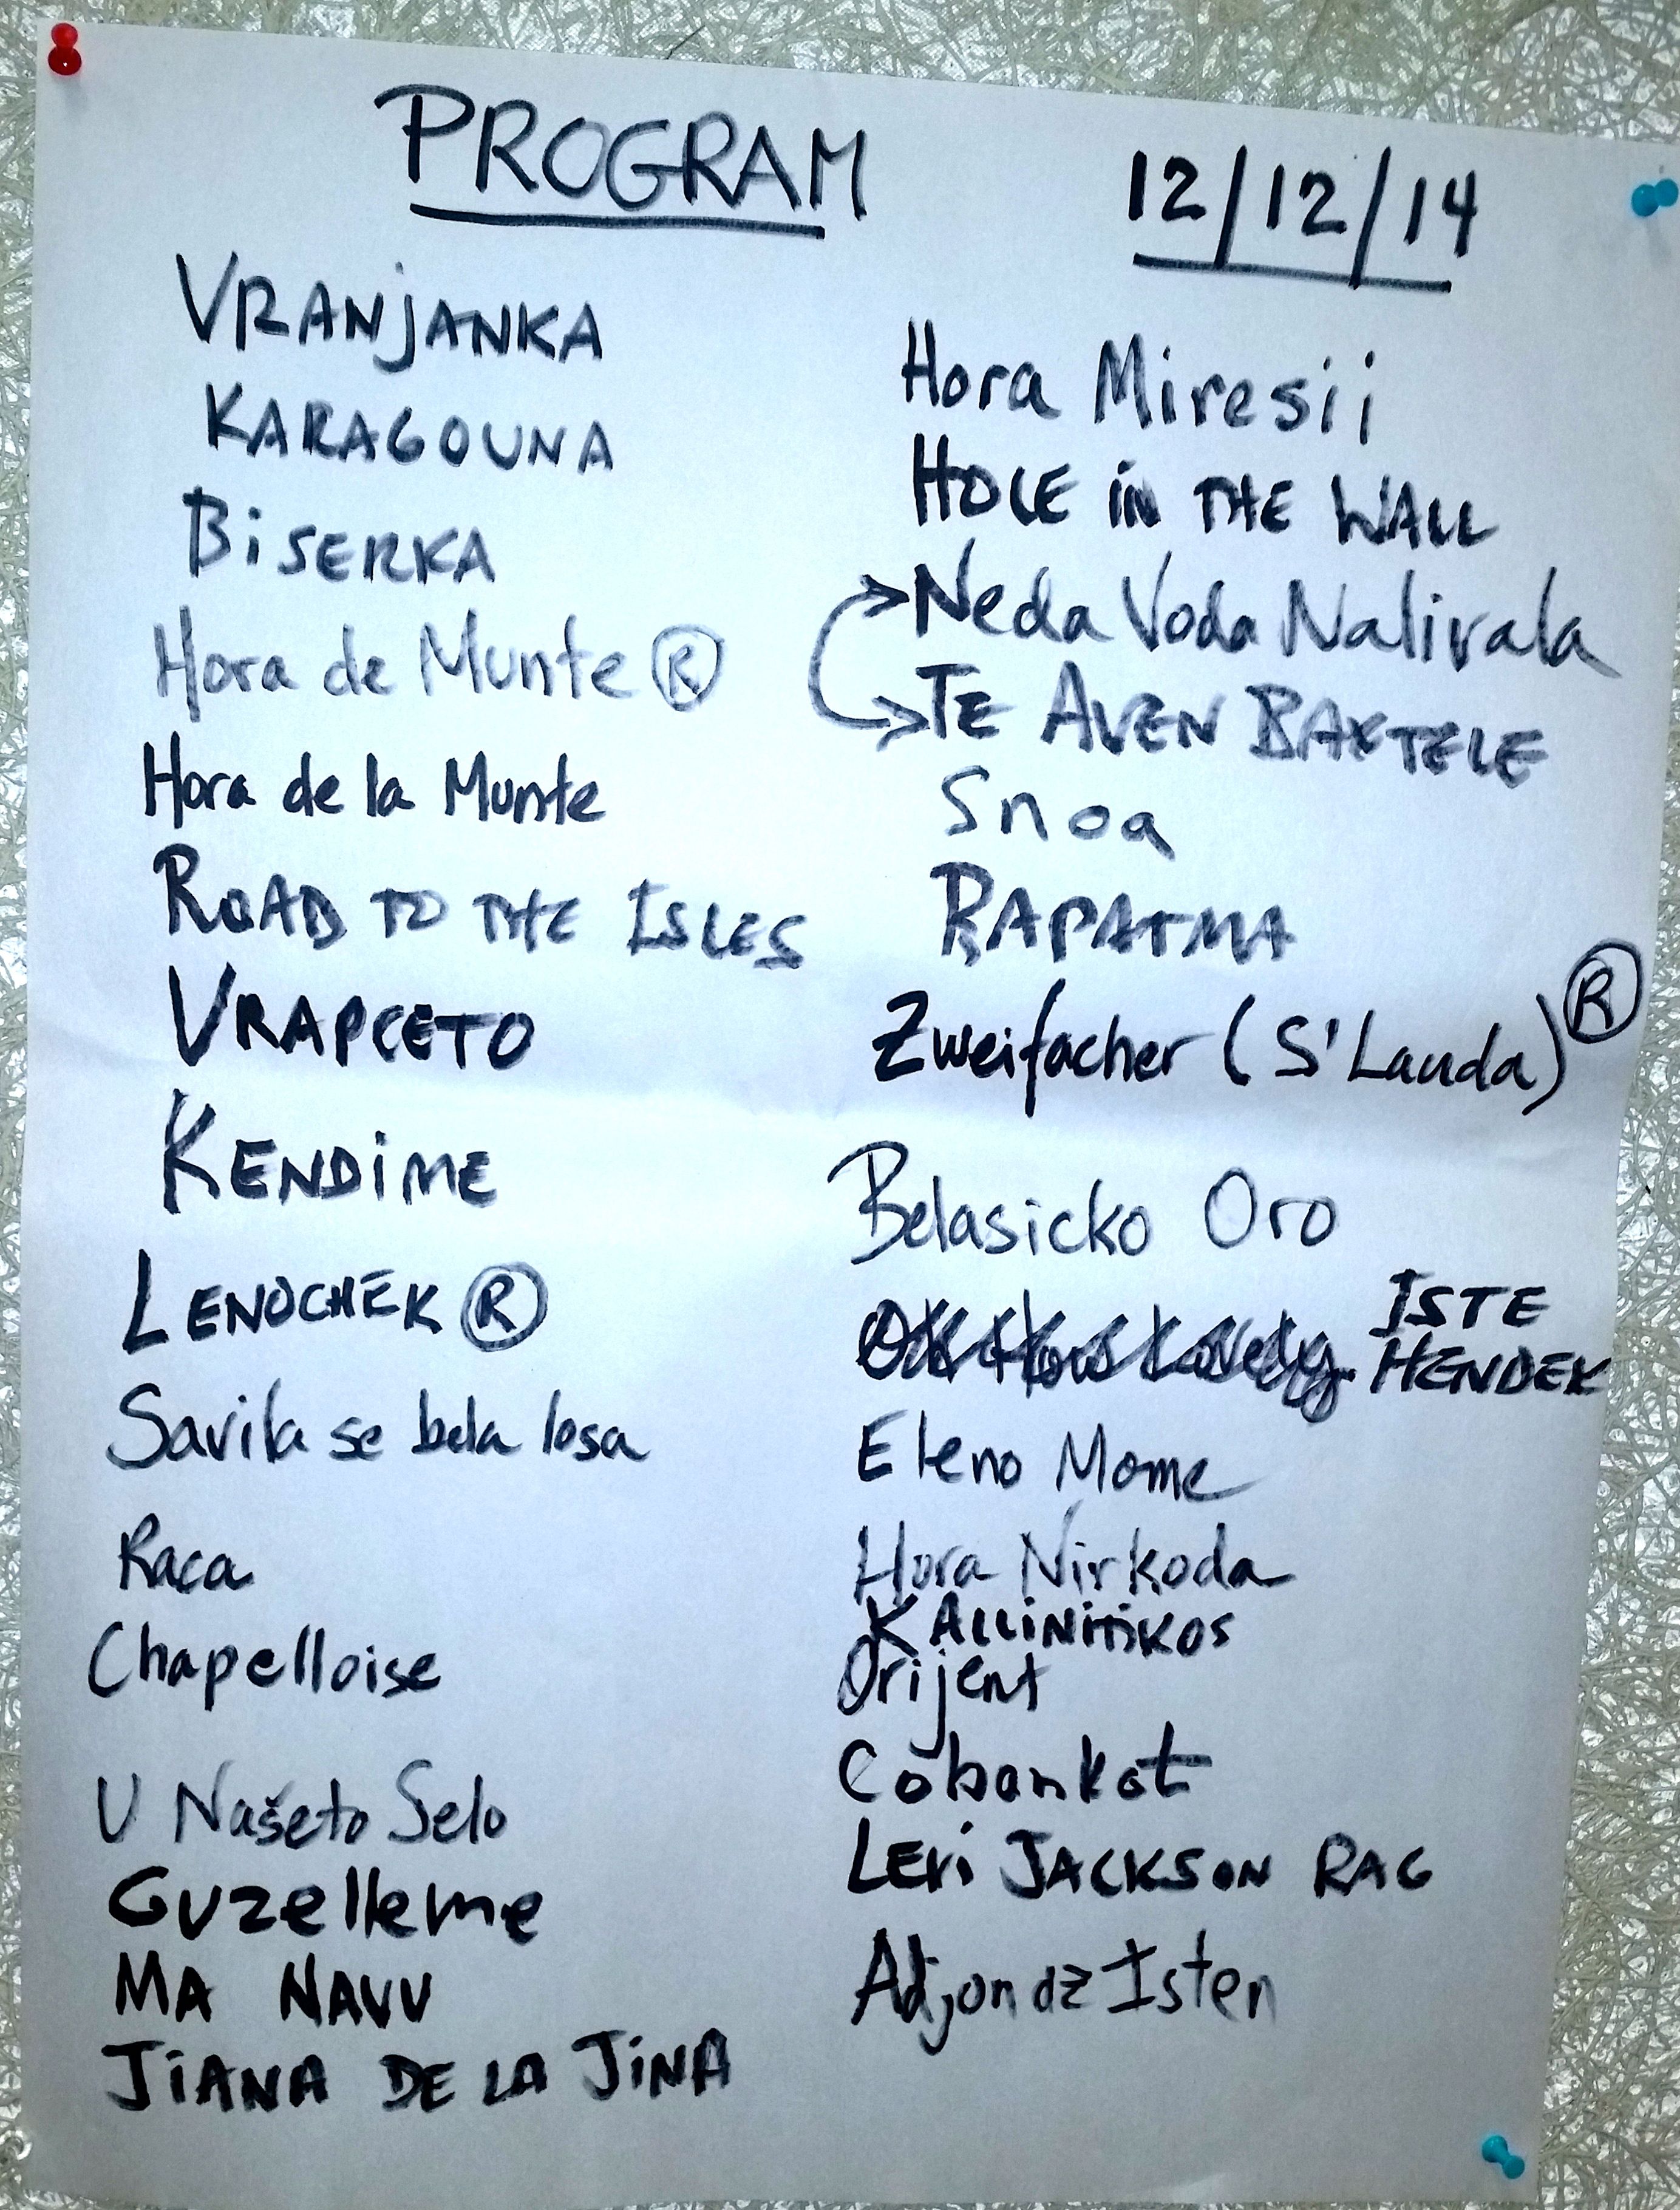 PROGRAM
12/12/14
VRANJANKA
KARAGOUNA
BiSERKA
Hora de Munte ®
Hora de la Munte
ROAD TO THE ISLES
VRAPCETO
KENDiME
LENOCHEK ®
Savila se bela losa
Raca
Chapelloise
U Našeto Selo
Guzelleme
MA NAVU
JiANA DE LA JiNA
Hora Miresii
HOLE iN THE WALL
Neda Voda Nalivala
TE AVEN BAXTELE
Snoa
RAPATMA
Zweifacher (S'Lauda) ®
Belasicko Oro
ISTE
HENDEK
Eleno Mome
Hora Nirkoda
KALLiNiTiKOS
Orijent
Cobankat
LEVi JACKSON RAG
Adjon az Isten